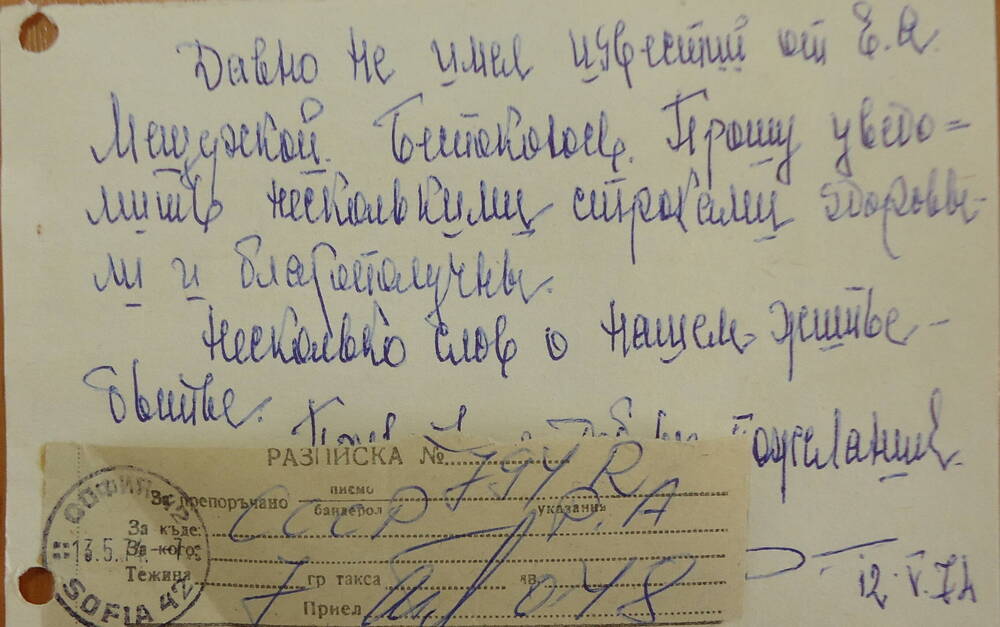 Давно не имел известий от Е.А.
Мещерской. Беспокоюсь. Прошу уведо=
мить несколькими строками здоровы-
ли и благополучны.
Несколько слов о нашем житье-
бытье.
пожеланий
РАЗПИСКА № 794 R
За препоръчано писмо бандерол указания
СССР
За къде:
За кого:
Тежина 7 гр такса лв. 048
Приел
СОФИЯ 42
13.5.74
SOFIA 42
12.V.74